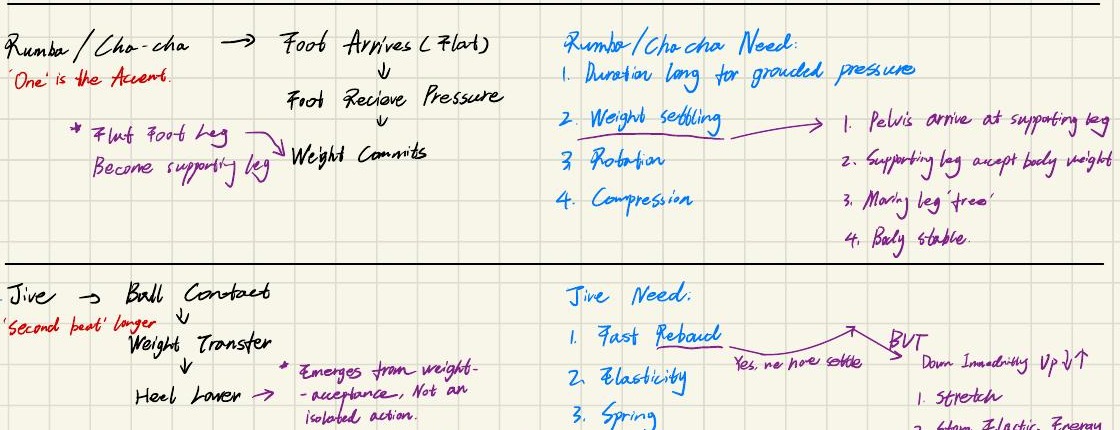 Rumba/Cha-cha → Foot Arrives (Flat)
'One' is the Accent.
↓
Foot Recieve Pressure
↓
* Flat Foot Leg
Become supporting leg
Weight Commits
Rumba/Cha cha Need:
1. Duration long for grouded pressure
2. Weight settling
3. Rotation
4. Compression
1. Pelvis arrive at supporting leg
2. Supporting leg accept body weight
3. Moving leg 'free'
4. Body stable.
Jive → Ball Contact
'second beat' longer
↓
Weight Transfer
↓
Heel Lower →
* Emerges from weight-
-acceptance, Not an
isolated action.
Jive Need:
1. Fast Reboud
2. Elasticity
3. Spring
Yes, we have settle
BUT
Down Immediatly Up ↓↑
1. Stretch
2. Store Elastic Energy